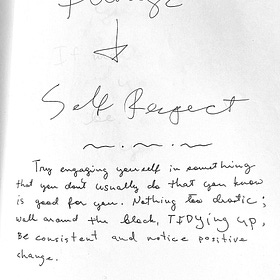 Self Respect
Try engaging yourself in something
that you don't usually do that you know
is good for you. Nothing too drastic;
walk around the block, TIDYing up,
Be consistent and notice positive
change.